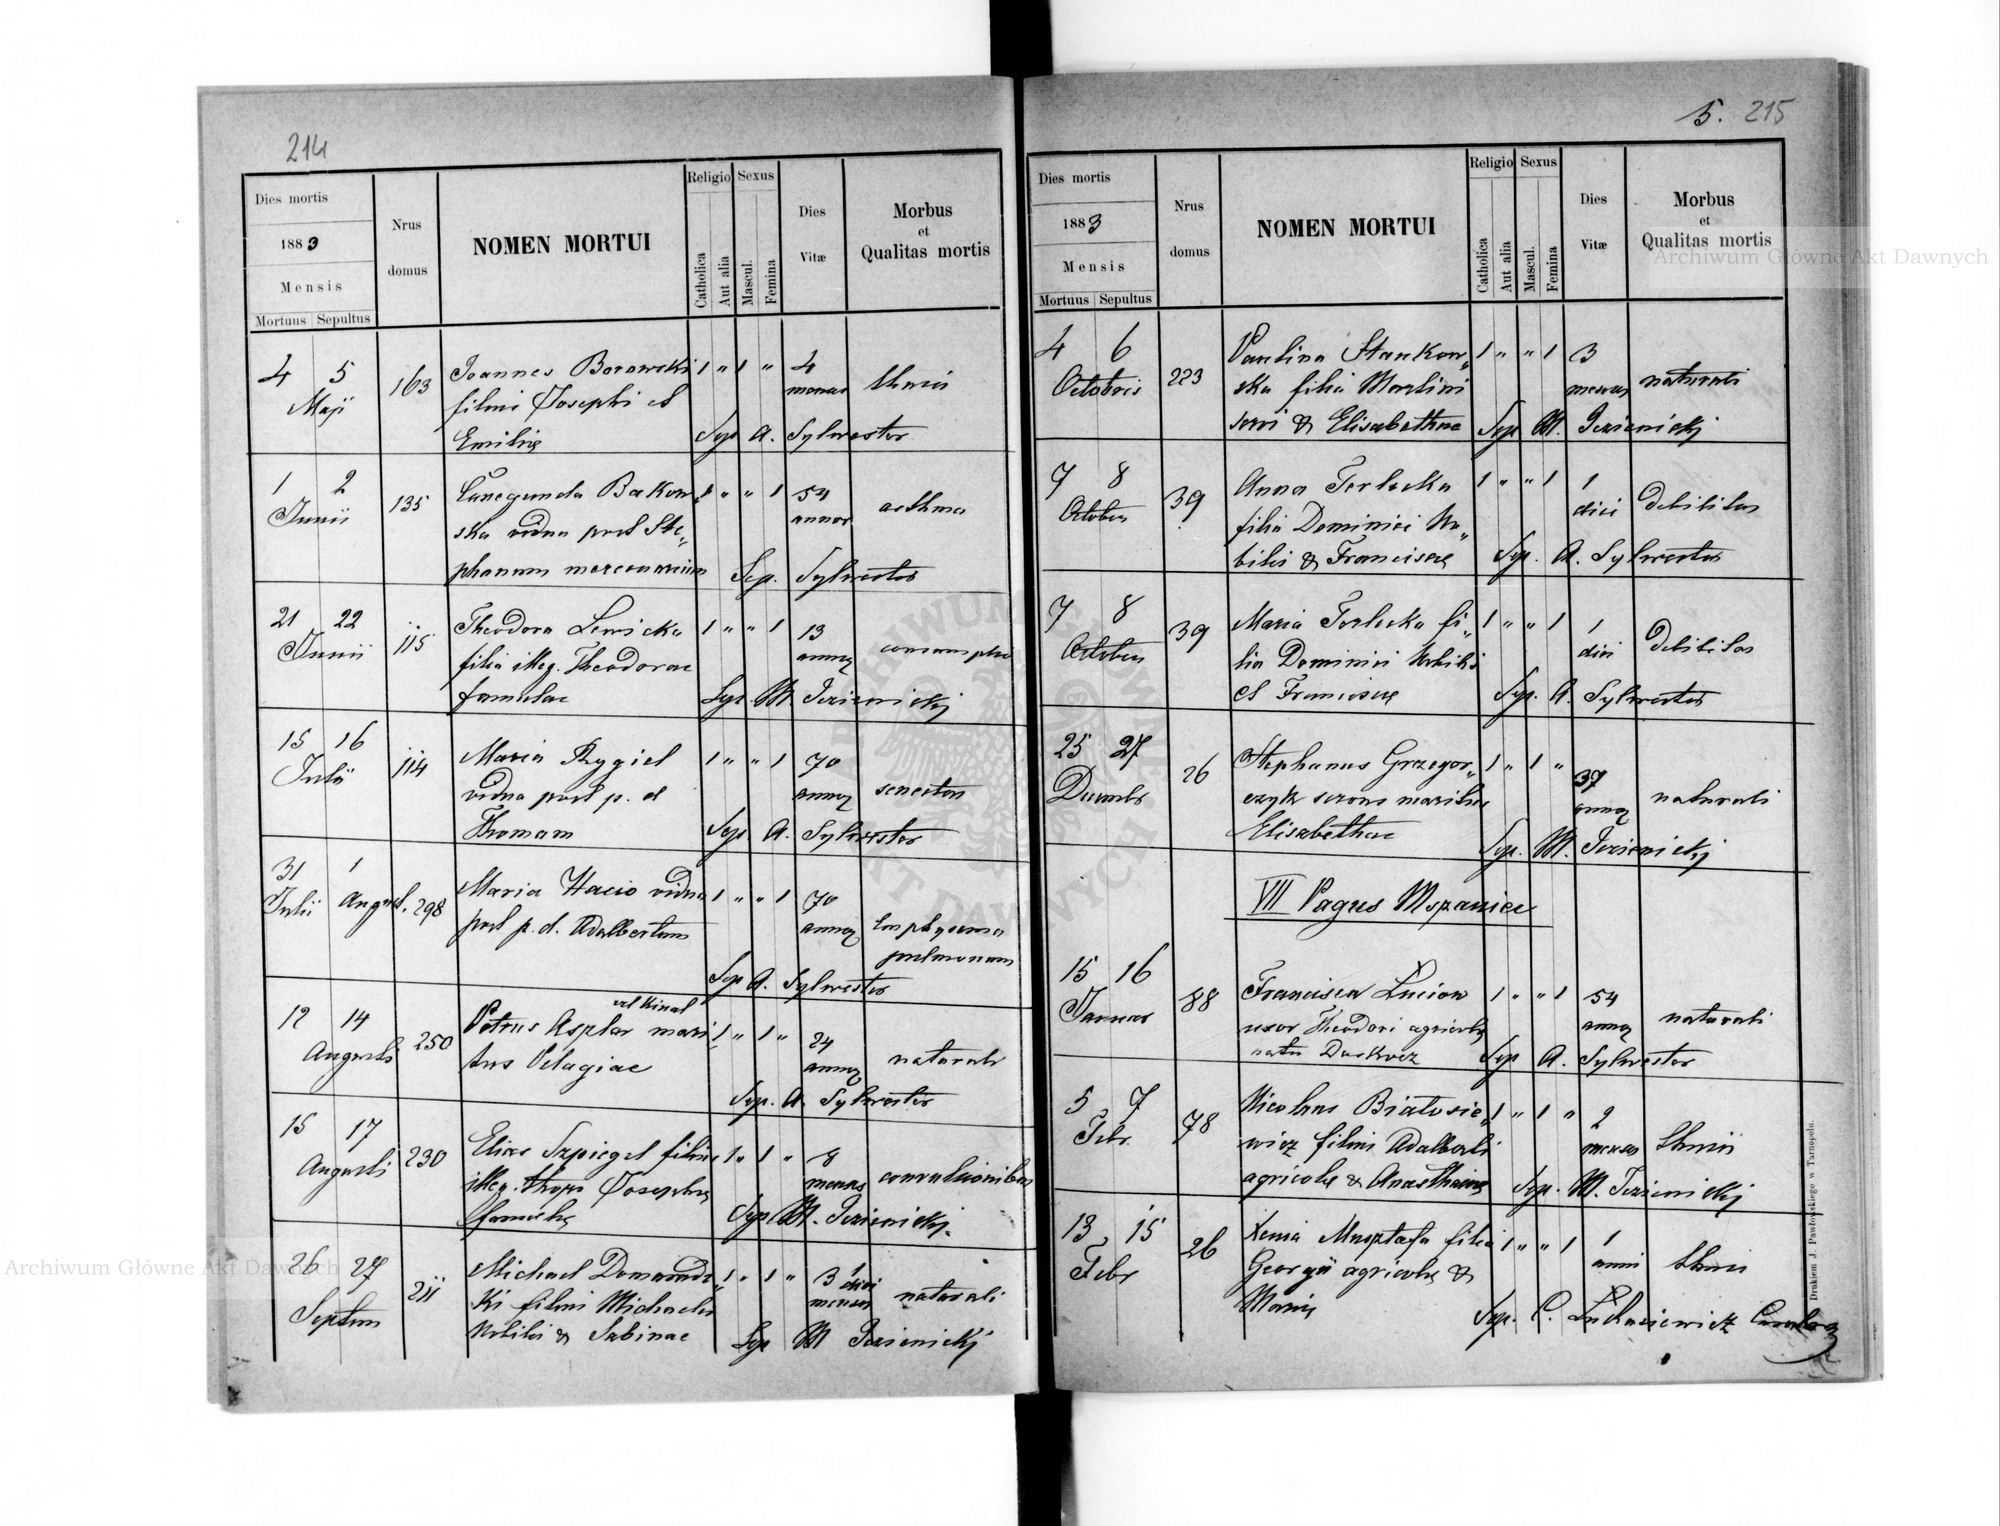 214
Dies mortis
1883
Mensis
Mortuus Sepultus
Nrus
domus
NOMEN MORTUI
Religio
Catholica
Aut alia
Sexus
Mascul.
Femina
Dies
Vitæ
Morbus
et
Qualitas mortis
4 5 163 Joannes Borowski 1 " 1 " 4
Maji filius Josephi et menses thusis
Emilię Sep A. Sylwester
1 2 135 Cunegunda Bakow 1 " " 1 54 asthma
Junii ska vidua post Ste„ annor
phanum mercenarium Sep. Sylwester
21 22 115 Theodora Lewicka 1 " " 1 13
Junii filia illeg. Theodorae
famulae Sep. M. Jezienickj
15 16 114 Maria Rygiel 1 " " 1 70
Julii vidua post p. d
Thomam Sep A. Sylwester
31 1 298 Maria Hacio vidua 1 " " 1 70
Julii August. post p. d. Adalbertum Emphysema
pulmonum
Sep A. Sylwester
vel Kinal
12 14 250 Petrus Asplar mari 1 " 1 " 24
Augusti tus Pelagiae
Sep. A. Sylwester
15 17 230 Elias Szpiegel filius 1 " 1 " 8
Augusti illeg. Josephę menses convulsionibus
famulę Sep M. Jezienickj.
26 27 211 Michael Domaradz 1 " 1 " 3 1 diei
Septem ki filius Michaelis menses naturali
Nobilis & Sabinae Sep M Jezienickj
5. 215
Dies mortis
1883
Mensis
Mortuus Sepultus
Nrus
domus
NOMEN MORTUI
Religio
Catholica
Aut alia
Sexus
Mascul.
Femina
Dies
Vitæ
Morbus
et
Qualitas mortis
4 6 223 Paulina Stankow„ 1 " " 1 3
Octobris ska filia Martini menses naturali
servi & Elisabethae Sep M. Jezienickj
7 8 39 Anna Terlecka 1 " " 1 1
Octobris filia Dominici No„ diei debilitas
bilis & Franciscę Sep. A. Sylwester
7 8 39 Maria Terlecka fi„ 1 " " 1 1
Octobris lia Dominici Nobilis diei debilitas
et Franciscę Sep. A. Sylwester
25 27 26 Stephanus Grzegor„ 1 " 1 " 37
Decembr czyk maritus naturali
Elisabethae Sep. M. Jezienickj
VII Pagus Mszaniec
15 16 88 Francisca Lucion 1 " " 1 54
Januar uxor Theodori agricolę naturali
nata Sep A. Sylwester
5 7 78 Nicolaus Białosie„ 1 " 1 " 2
Febr. wicz filius Adalberti menses thusis
agricolę & Anasthasię Sep. M. Jezienickj
13 15 26 Xenia filia 1 " " 1 1
Febr Georgii agricolę & anni thusis
Marię Sep. C. Łukasiewicz
Drukiem J. Pawłowskiego w Tarnopolu.
Archiwum Główne Akt Dawnych
Archiwum Główne Akt Dawnych
ARCHIWUM GŁÓWNE AKT DAWNYCH